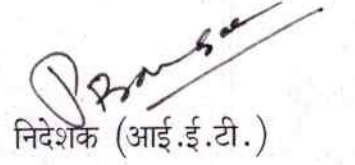 निदेशक (आई.ई.टी.)